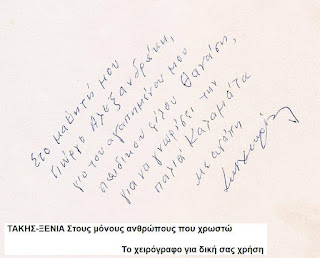 Στο μαθητή μου
Γιώργο Αλεξανδράκη,
γιο του αγαπημένου μου
παιδικού φίλου Θανάση,
για να γνωρίσει την
παλιά Καλαμάτα
με αγάπη
ΤΑΚΗΣ-ΞΕΝΙΑ Στους μόνους ανθρώπους που χρωστώ
Το χειρόγραφο για δική σας χρήση